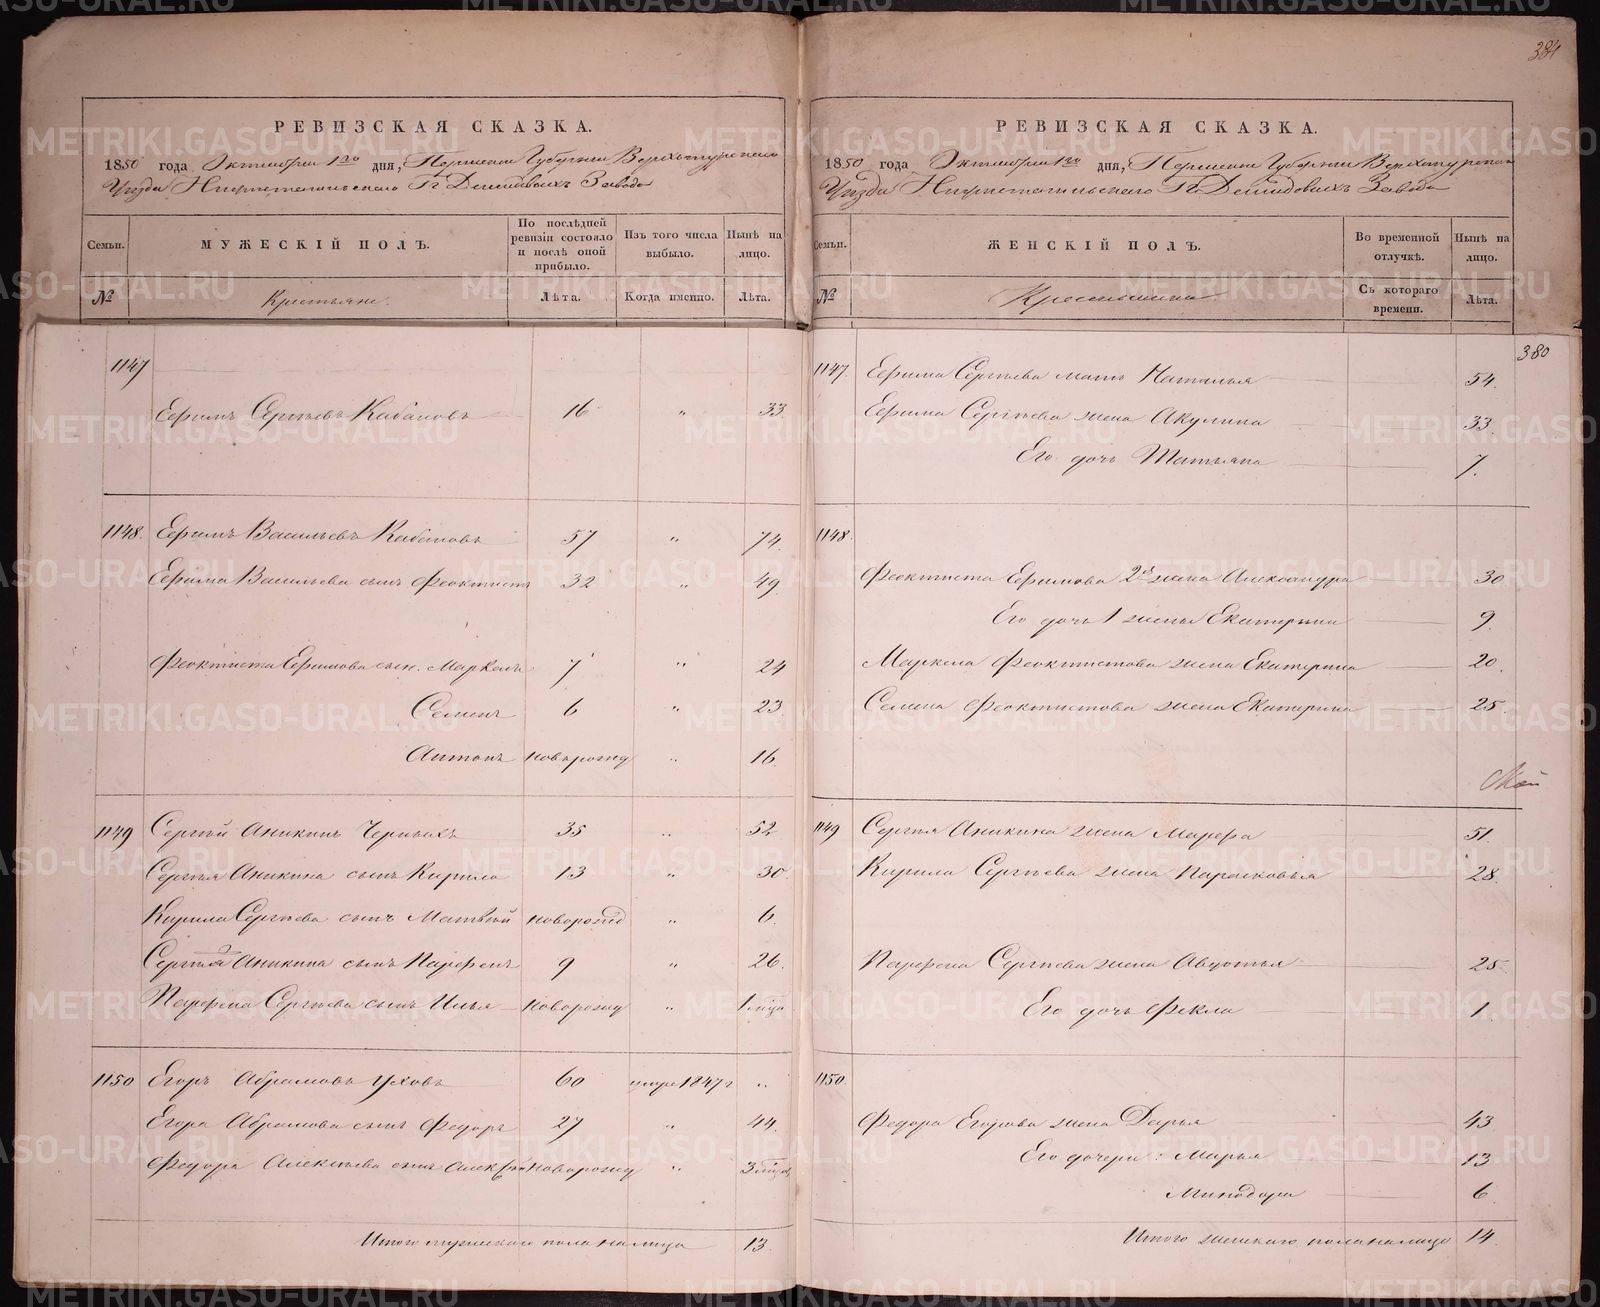 384
РЕВИЗСКАЯ СКАЗКА.
1850 года Октября 1го дня, Пермской Губернiи Верхотурскаго
Уѣзда Нижнетагильскаго Гг Демидовыхъ Завода
Семьи.
МУЖЕСКIЙ ПОЛЪ.
По послѣдней ревизiи состояло и послѣ оной прибыло.
Изъ того числа выбыло.
Нынѣ на лицо.
№
Крестьяне.
Лѣта.
Когда именно.
Лѣта.
1147
Ефимъ Сергѣевъ Кабановъ 16 " 33
1148. Ефимъ Васильевъ Кабановъ 57 " 74.
Ефима Васильева сынъ Феоктистъ 32 " 49.
Феоктиста Ефимова сын. Маркелъ 7 " 24
Семенъ 6 " 23.
Антонъ новорожд " 16.
1149 Сергѣй Аникинъ Черныхъ 35 " 52
Сергѣя Аникина сынъ Кирило 13 " 30
Кирила Сергѣева сынъ Матвѣй новорожд " 6.
Сергѣя 2 Аникина сынъ Парфенъ 9 " 26.
Парфена Сергѣева сынъ Илья новорожд " 1 мѣца
1150 Егоръ Абрамовъ Уховъ 60 умре 1847 г "
Егора Абрамова сынъ Федоръ 27 " 44.
Федора Алексѣева сынъ Алексѣй новорожд " 3 мѣца
Итого мужескаго пола на лицо 13.
РЕВИЗСКАЯ СКАЗКА.
1850 года Октября 1го дня, Пермской Губернiи Верхотурскаго
Уѣзда Нижнетагильскаго Гг Демидовыхъ Завода
Семьи.
ЖЕНСКIЙ ПОЛЪ.
Во временной отлучкѣ.
Нынѣ на лицо.
№
Крестьянки
Съ котораго времени.
Лѣта.
380
1147. Ефима Сергѣева мать Наталья 54.
Ефима Сергѣева жена Акулина 33.
Его дочь Татьяна 7.
1148.
Феоктиста Ефимова 2я жена Александра 30
Его дочь 1 жены Екатерина 9.
Маркела Феоктистова жена Екатерина 20.
Семена Феоктистова жена Екатерина 25.
1149 Сергѣя Аникина жена Марфа 51.
Кирила Сергѣева жена Парасковья 28.
Парфена Сергѣева жена Авдотья 25
Его дочь Фекла 1.
1150.
Федора Егорова жена Дарья 43
Его дочери: Марья 13.
Минодора 6.
Итого женскаго пола налицо 14.
METRIKI.GASO-URAL.RU